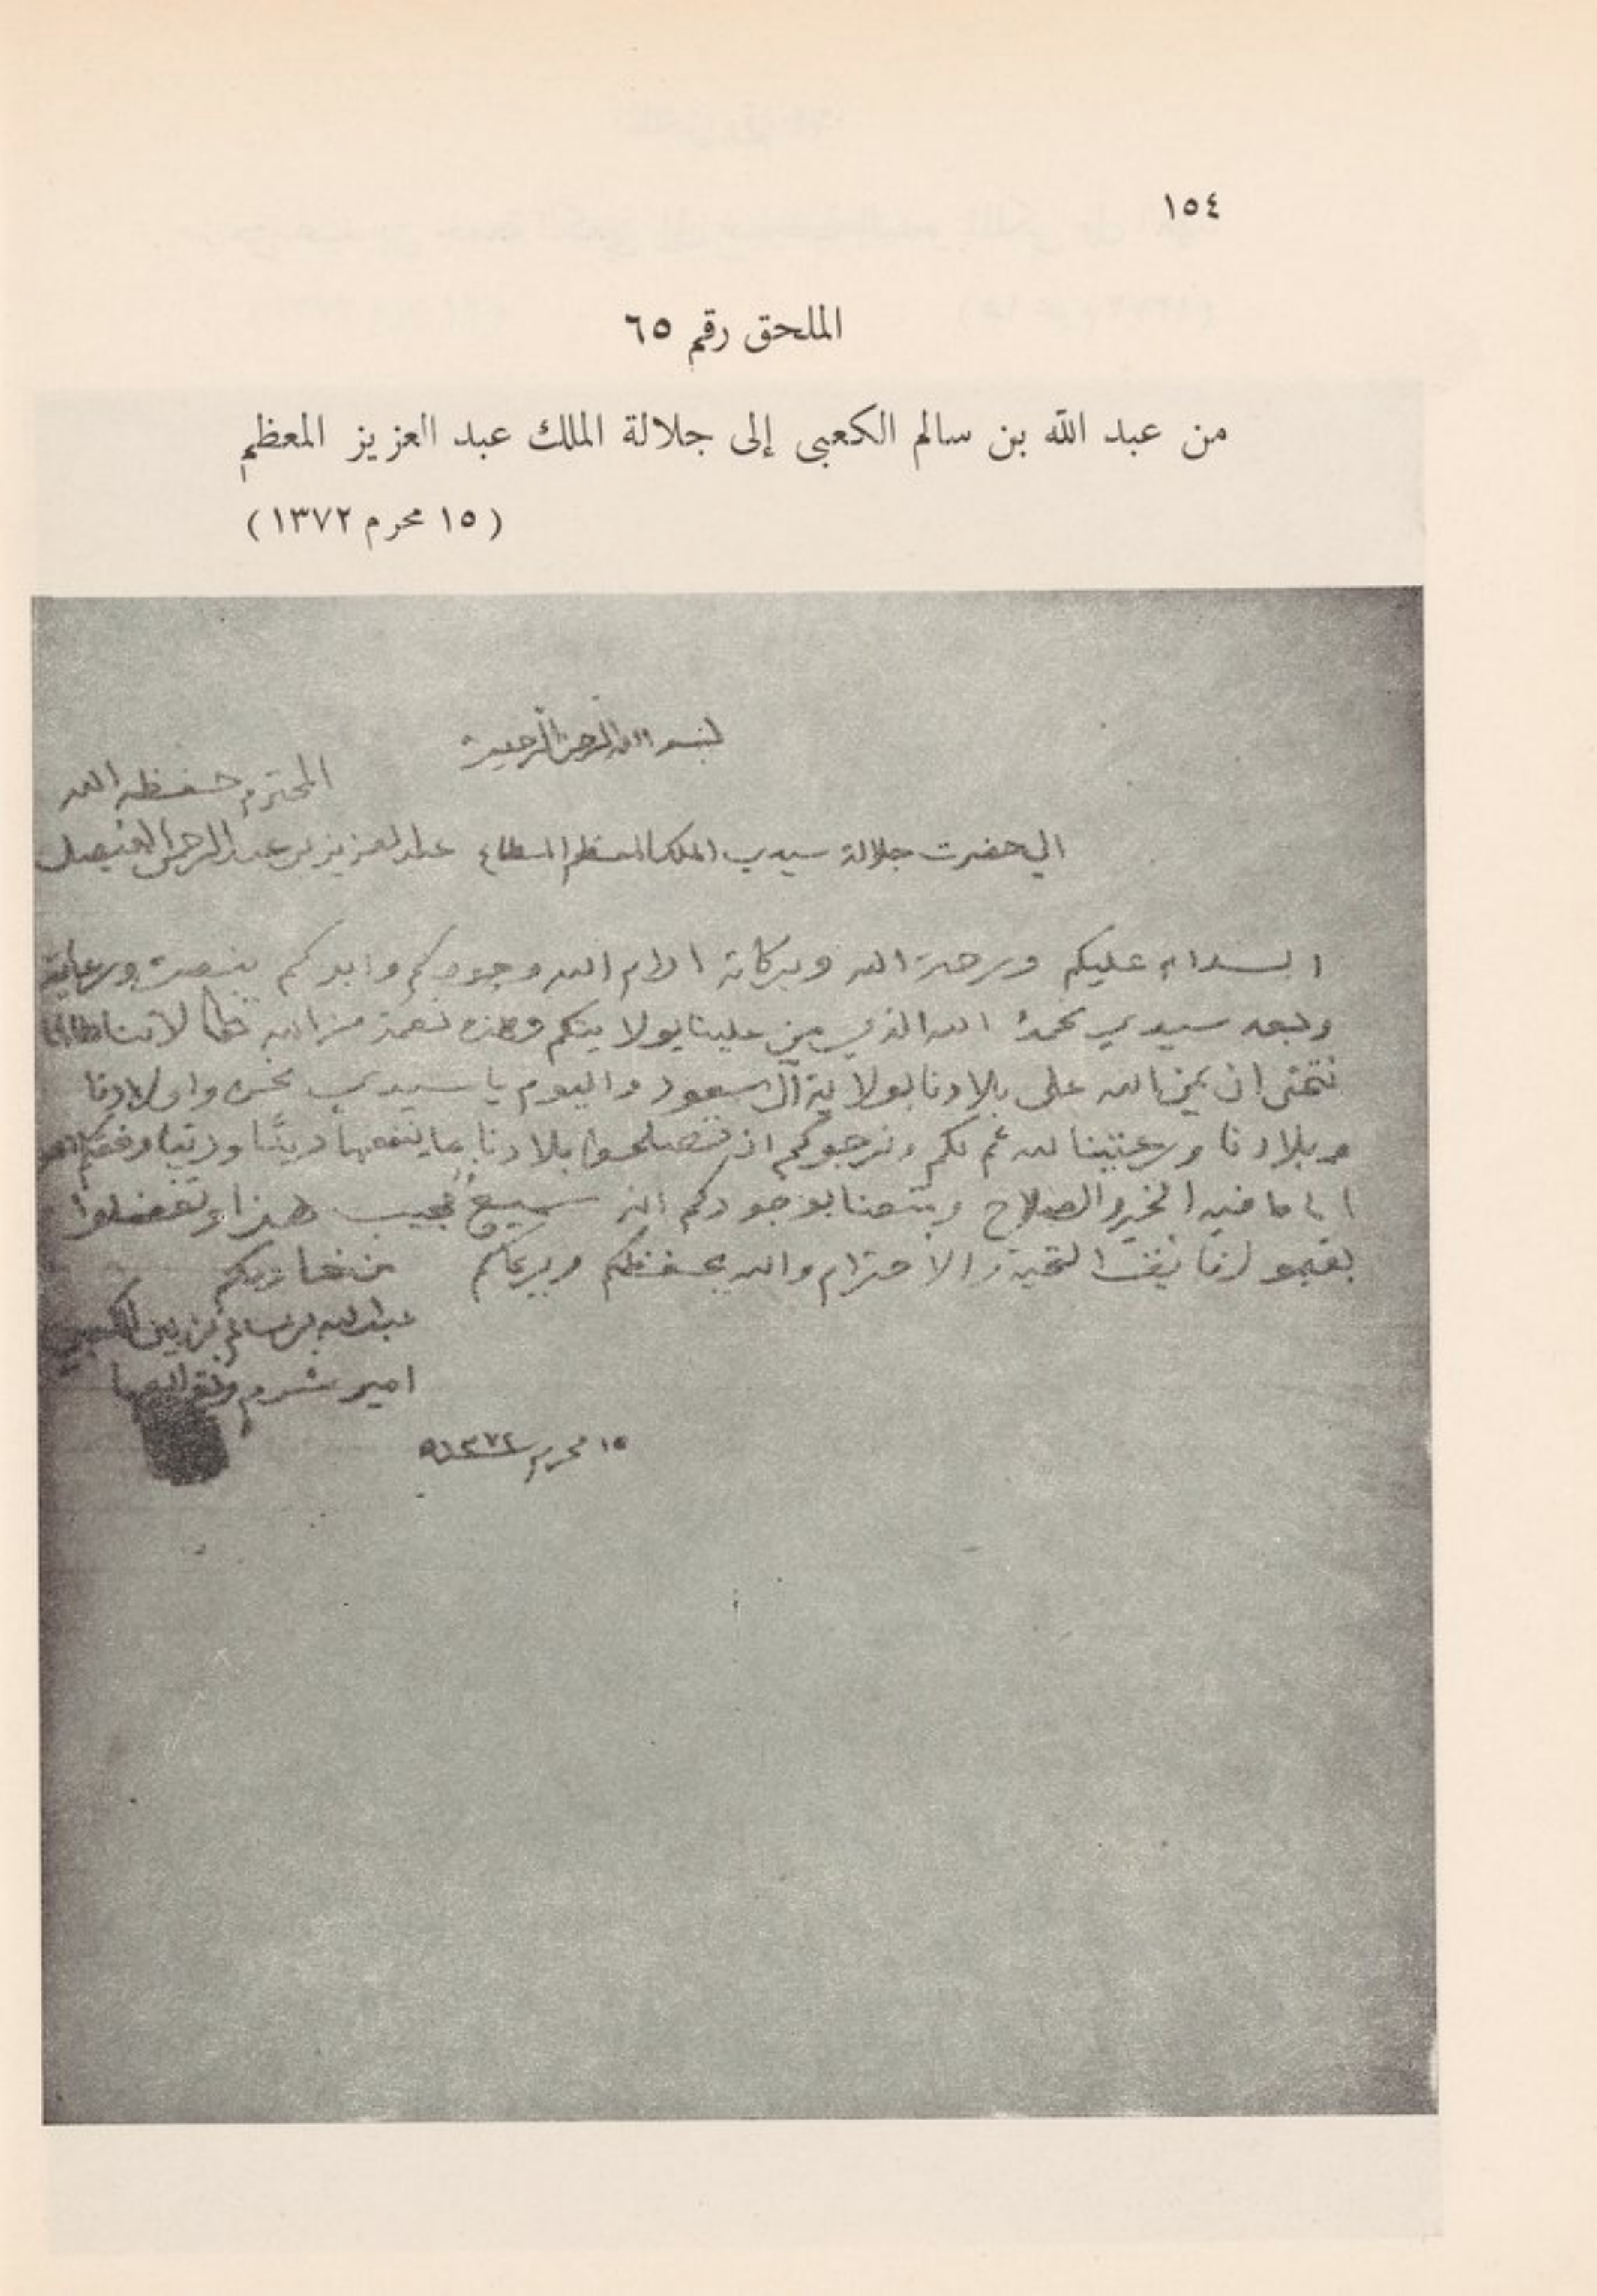 ١٥٤
الملحق رقم ٦٥
من عبد الله بن سالم الكعبى إلى جلالة الملك عبد العزيز المعظم
( ١٥ محرم ١٣٧٢ )
بسم الله الرحمن الرحيم
المحترم حفظه الله
الي حضرت جلالة سيدي الملك المعظم المطاع عبد العزيز بن عبد الرحمن الفيصل
السلام عليكم ورحمة الله وبركاته ادام الله وجودكم وايدكم بنصره ورعايته
وبعد سيدي نحمد الله الذي من علينا بولايتكم وهذه نعمة من الله لاننا
نتمنى ان يمن الله على بلادنا بولاية آل سعود واليوم يا سيدي نحن واولادنا
وبلادنا ورعيتنا لله ثم لكم ونرجوكم ان تصلحوا بلادنا بما ينفعها دينًا ودنيا وفقكم الله
ايا ما فيه الخير والصلاح ومتعنا بوجودكم انه سميعٌ مجيب هذا وتفضلوا
بقبول فايق التحية والاحترام والله يحفظكم ويرعاكم من خادمكم
عبد الله بن سالم بن الكعبي
امير
١٥ محرم ١٣٧٢